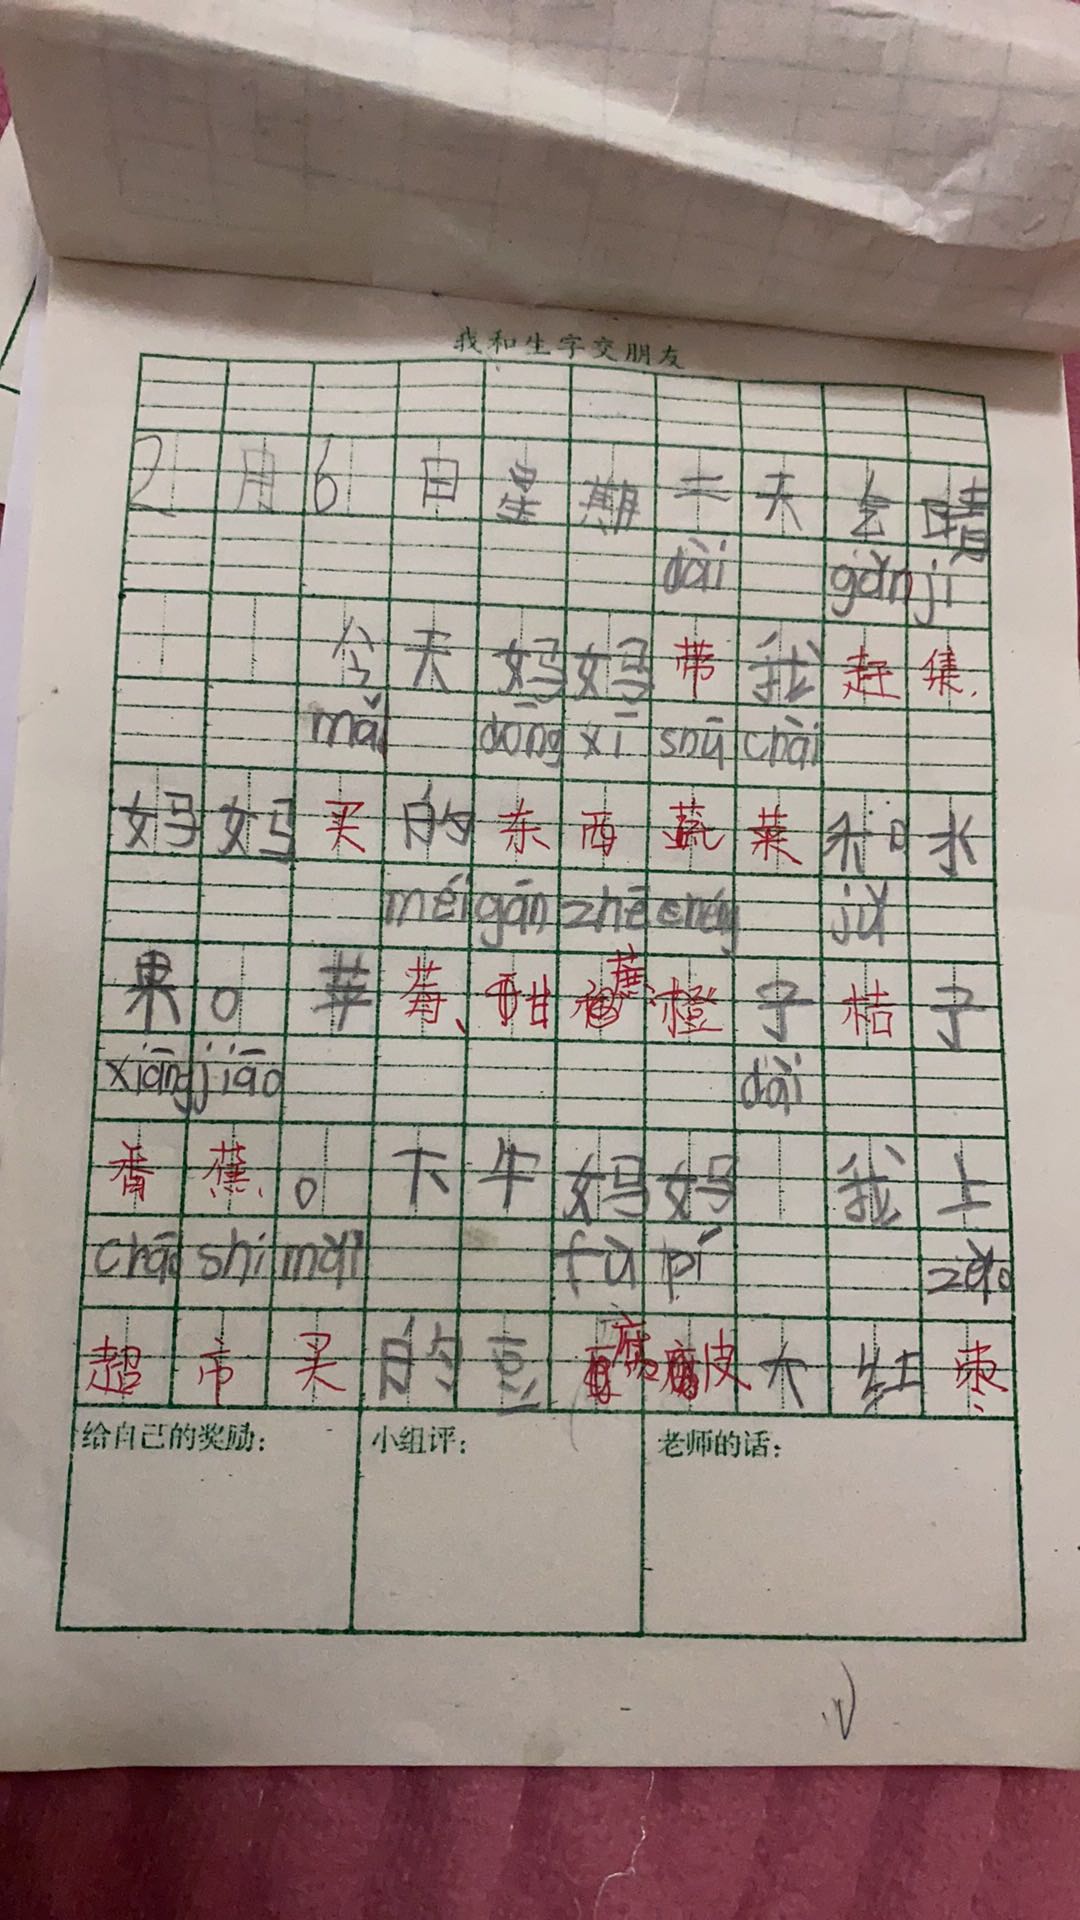 我和生字交朋友
2月6日星期二天气晴
dài gǎn jí
今天妈妈带我赶集.
mǎi dōng xī shū chài
妈妈买的东西蔬菜和水
méi gān zhē chéng jú
果。苹莓、甜蔗橙子桔子
xiāng jiāo dài
香蕉.。下牛妈妈 我上
chāo shì mǎi fǔ pí zǎo
超市买的豆腐皮大红枣
给自己的奖励:
小组评:
老师的话: